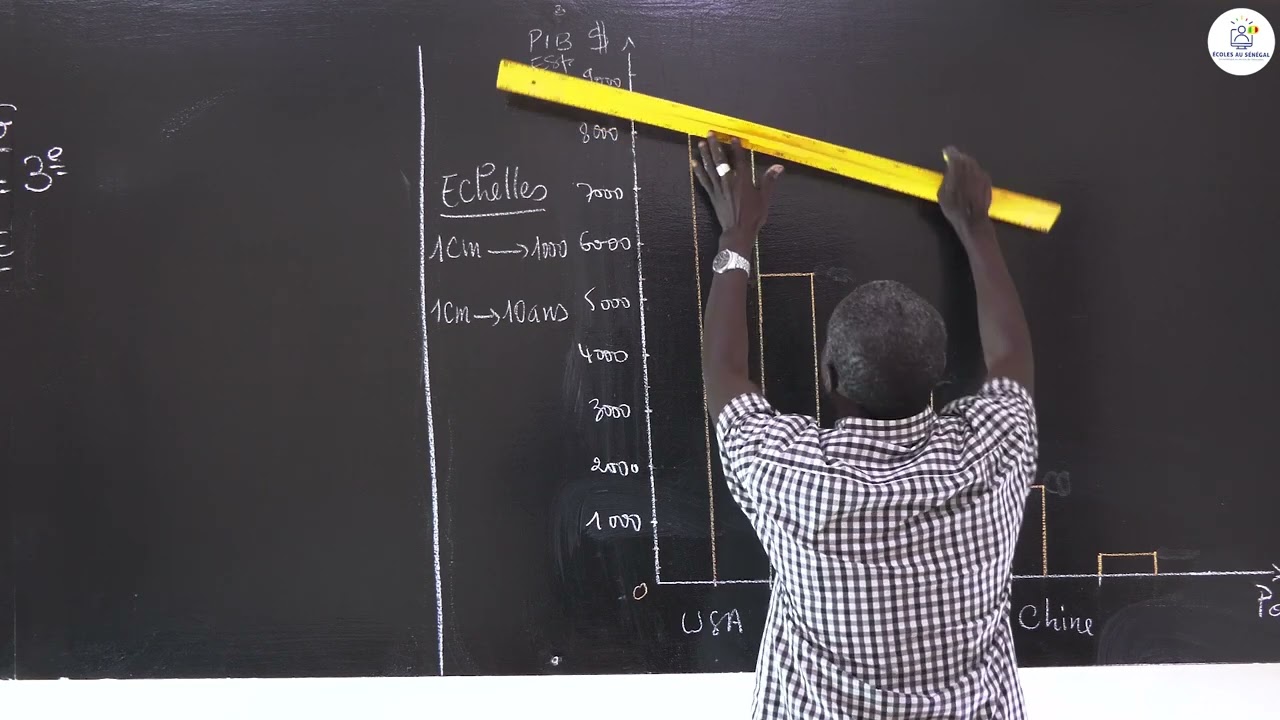 3e
PIB $
9000
8000
Echelles
7000
1Cm → 1000
6000
1Cm → 10ans
5000
4000
3000
2000
1000
0
USA
Chine
ÉCOLES AU SÉNÉGAL